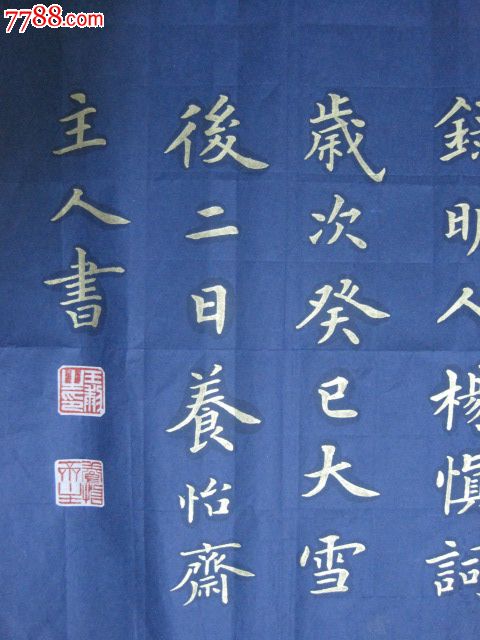 7788.com
錄明人楊慎詞
歲次癸巳大雪
後二日養怡齋
主人書